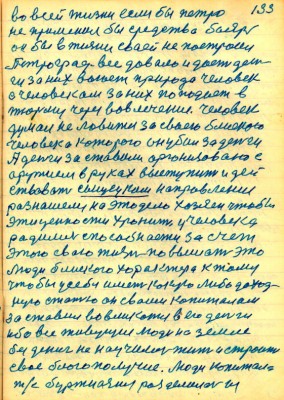 133
во всей жизни если бы петро
не применил бы средства
он бы в жизни своей не построил
Петроград все довало и дает ден-
ги за них воюет природа человек
с человеком за них попадает в
тюрму через вовлечение. Человек
думал не ловити за своего близкого
человека которого он убил за денги
А денги заставили организовано с
оружием в руках выступить и дей
ствовать сыщецким направлением
разнашем, на это дело хозяен чтобы
эти ценности хронит, у человека
родилися способности за счет
этого свою жизн повышат это
люди близкого характера к тому
чтобы у себя имет какую либо доход-
ную статю он своим капиталом
заставил вовлекати в его денги
ибо все живущие люди на земле
бы денег не научилис жит и строит
свое благополучие. Люди капитала
т/е буржуазия разделилас и